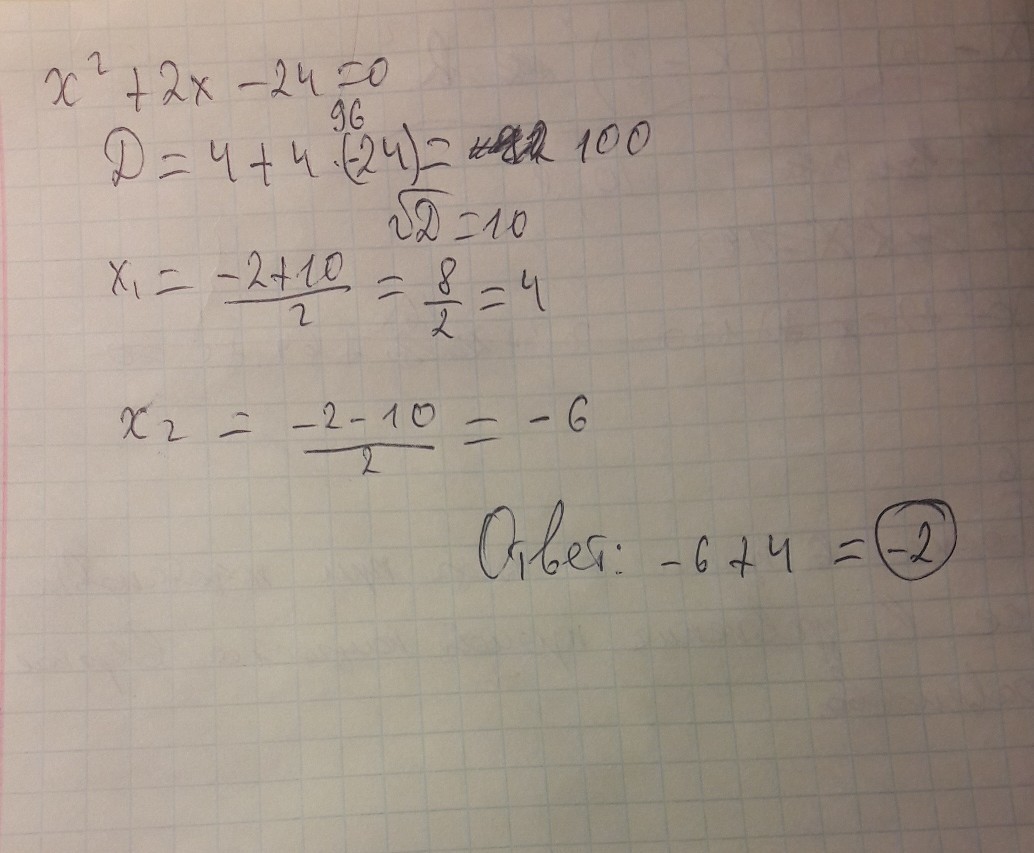 x² + 2x - 24 = 0
96
D = 4 + 4 · (-24) = 100
√D = 10
x₁ = (-2+10)/2 = 8/2 = 4
x₂ = (-2-10)/2 = -6
Ответ: -6 + 4 = -2